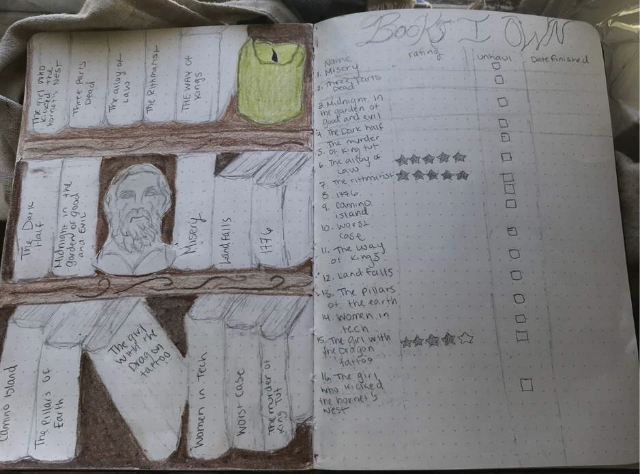 The girl who
kicked the
hornet's nest
Three Parts
Dead
The alloy of
Law
The Rithmatist
THE WAY OF
Kings
The Dark
Half
Midnight in the
garden of good
and Evil
Misery
Landfalls
1776
Camino Island
The Pillars of
Earth
The girl
with the
Dragon
tattoo
Women in Tech
Worst Case
The murder of
King Tut
Books I OWN
Name rating unhaul Date finished
1. Misery
2. Three Parts
Dead
3. Midnight in
the garden of
good and evil
4. The Dark half
5. The murder
of King tut
6. The alloy of
Law
7. The rithmatist
8. 1776
9. Camino
island
10. Worst
case
11. The way
of kings
12. Land falls
13. The pillars
of the earth
14. Women in
tech
15. The girl with
the Dragon
tattoo
16. The girl
who kicked
the hornet's
nest